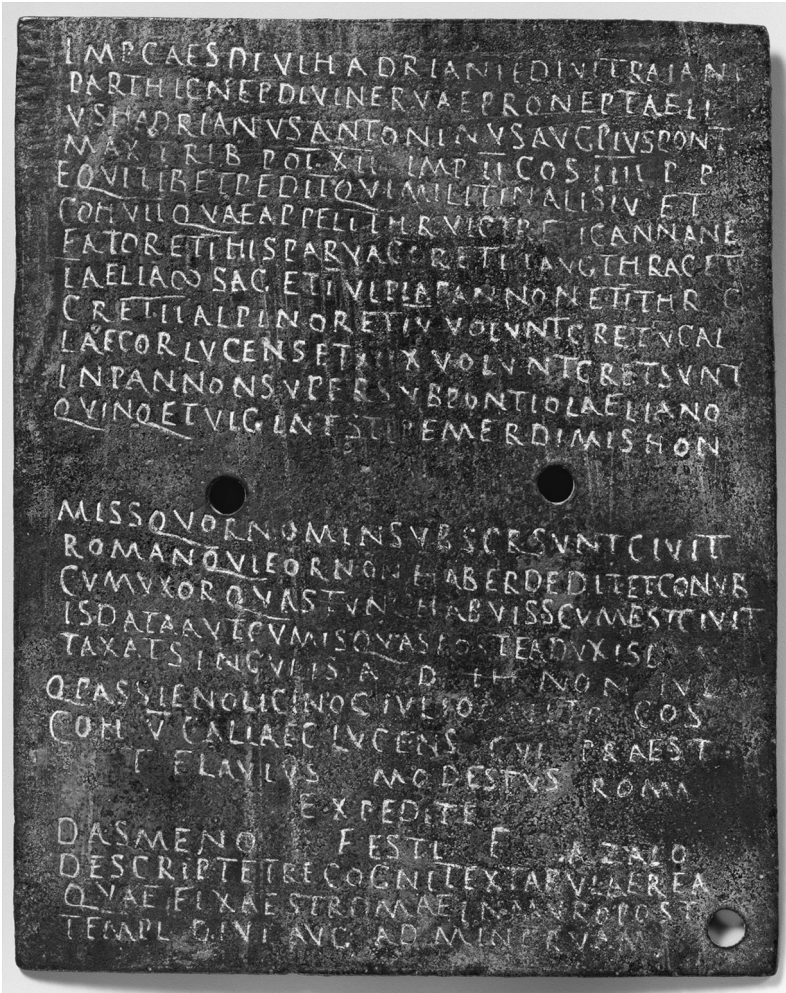 IMPCAESDIVIHADRIANIFDIVITRAIANI
PARTHICNEPDIVINERVAEPRONEPTAELI
VSHADRIANVSANTONINVSAVGPIVSPONT
MAX TRIB POT XII IMP II COS IIII P P
EQVITIBETPEDITQVIMILITINALISIV ET
COH VII QVAEAPPELL ITHRVICTRE ICANNANE
FATORETIHISPARVACORETIIAVGTHRACET
IAELIA∞SAGETIVLPLAPANNONETITHR C
CRETIIALPINORETIV VOLVNTCRETVCAL
LAECORLVCENSETXIIX VOLVNTCRETSVNT
INPANNONSVPERSVBPONTIOLAELIANO
QVINQETVIGINTSTIPEMERDIMISHON
MISSQVORNOMINSVBSCRSVNTCIVIT
ROMANQVIEORNONHABERDEDITETCONVB
CVMVXORQVASTVNCHABVISSCVMESTCIVIT
ISDATAAVTCVMISQVASPOSTEADVXIS
TAXATSINGVLIS A D III NON IVL
QPASSIENOLICINOCIVLIO COS
COH V CALLAEC LVCENS CVI PRAEST
T FLAVIVS MODESTVS ROMA
EXPEDITE
DASMENO FESTI F AZALO
DESCRIPTETRECOGNITEXTABVLAEREA
QVAEFIXAESTROMAEINMVROPOST
TEMPL DIVI AVG AD MINERVAM